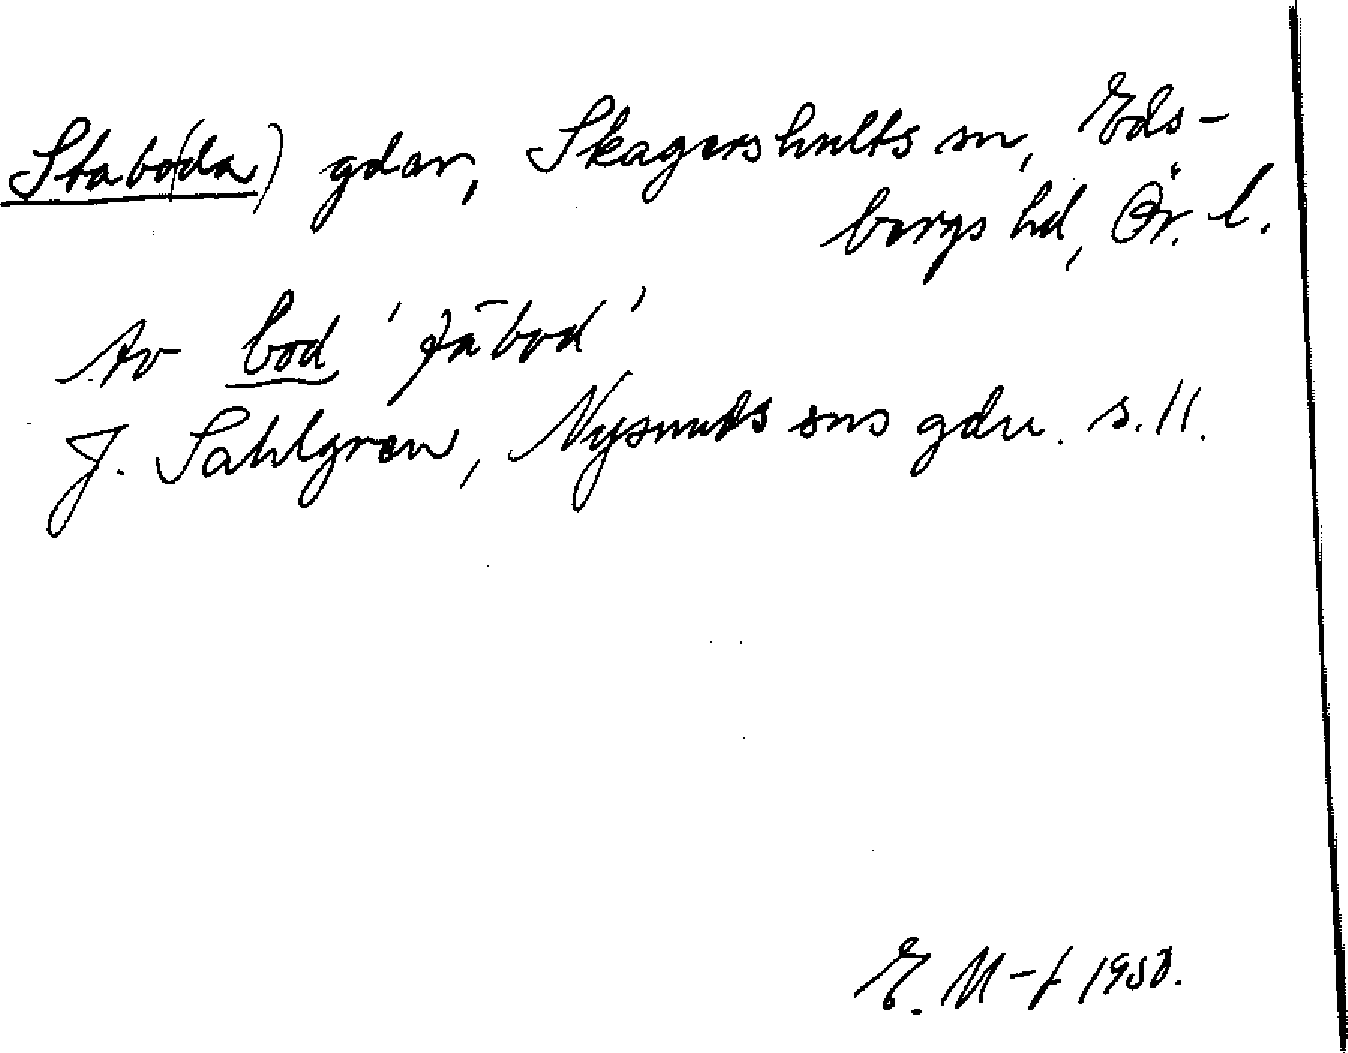 Stabo(da) gdar, Skagershults sn, Eds-
bergs hd, Ör. l.
Av bod 'fäbod'
J. Sahlgren, Nysunds sns gdn. s. 11.
E. M-f 1950.